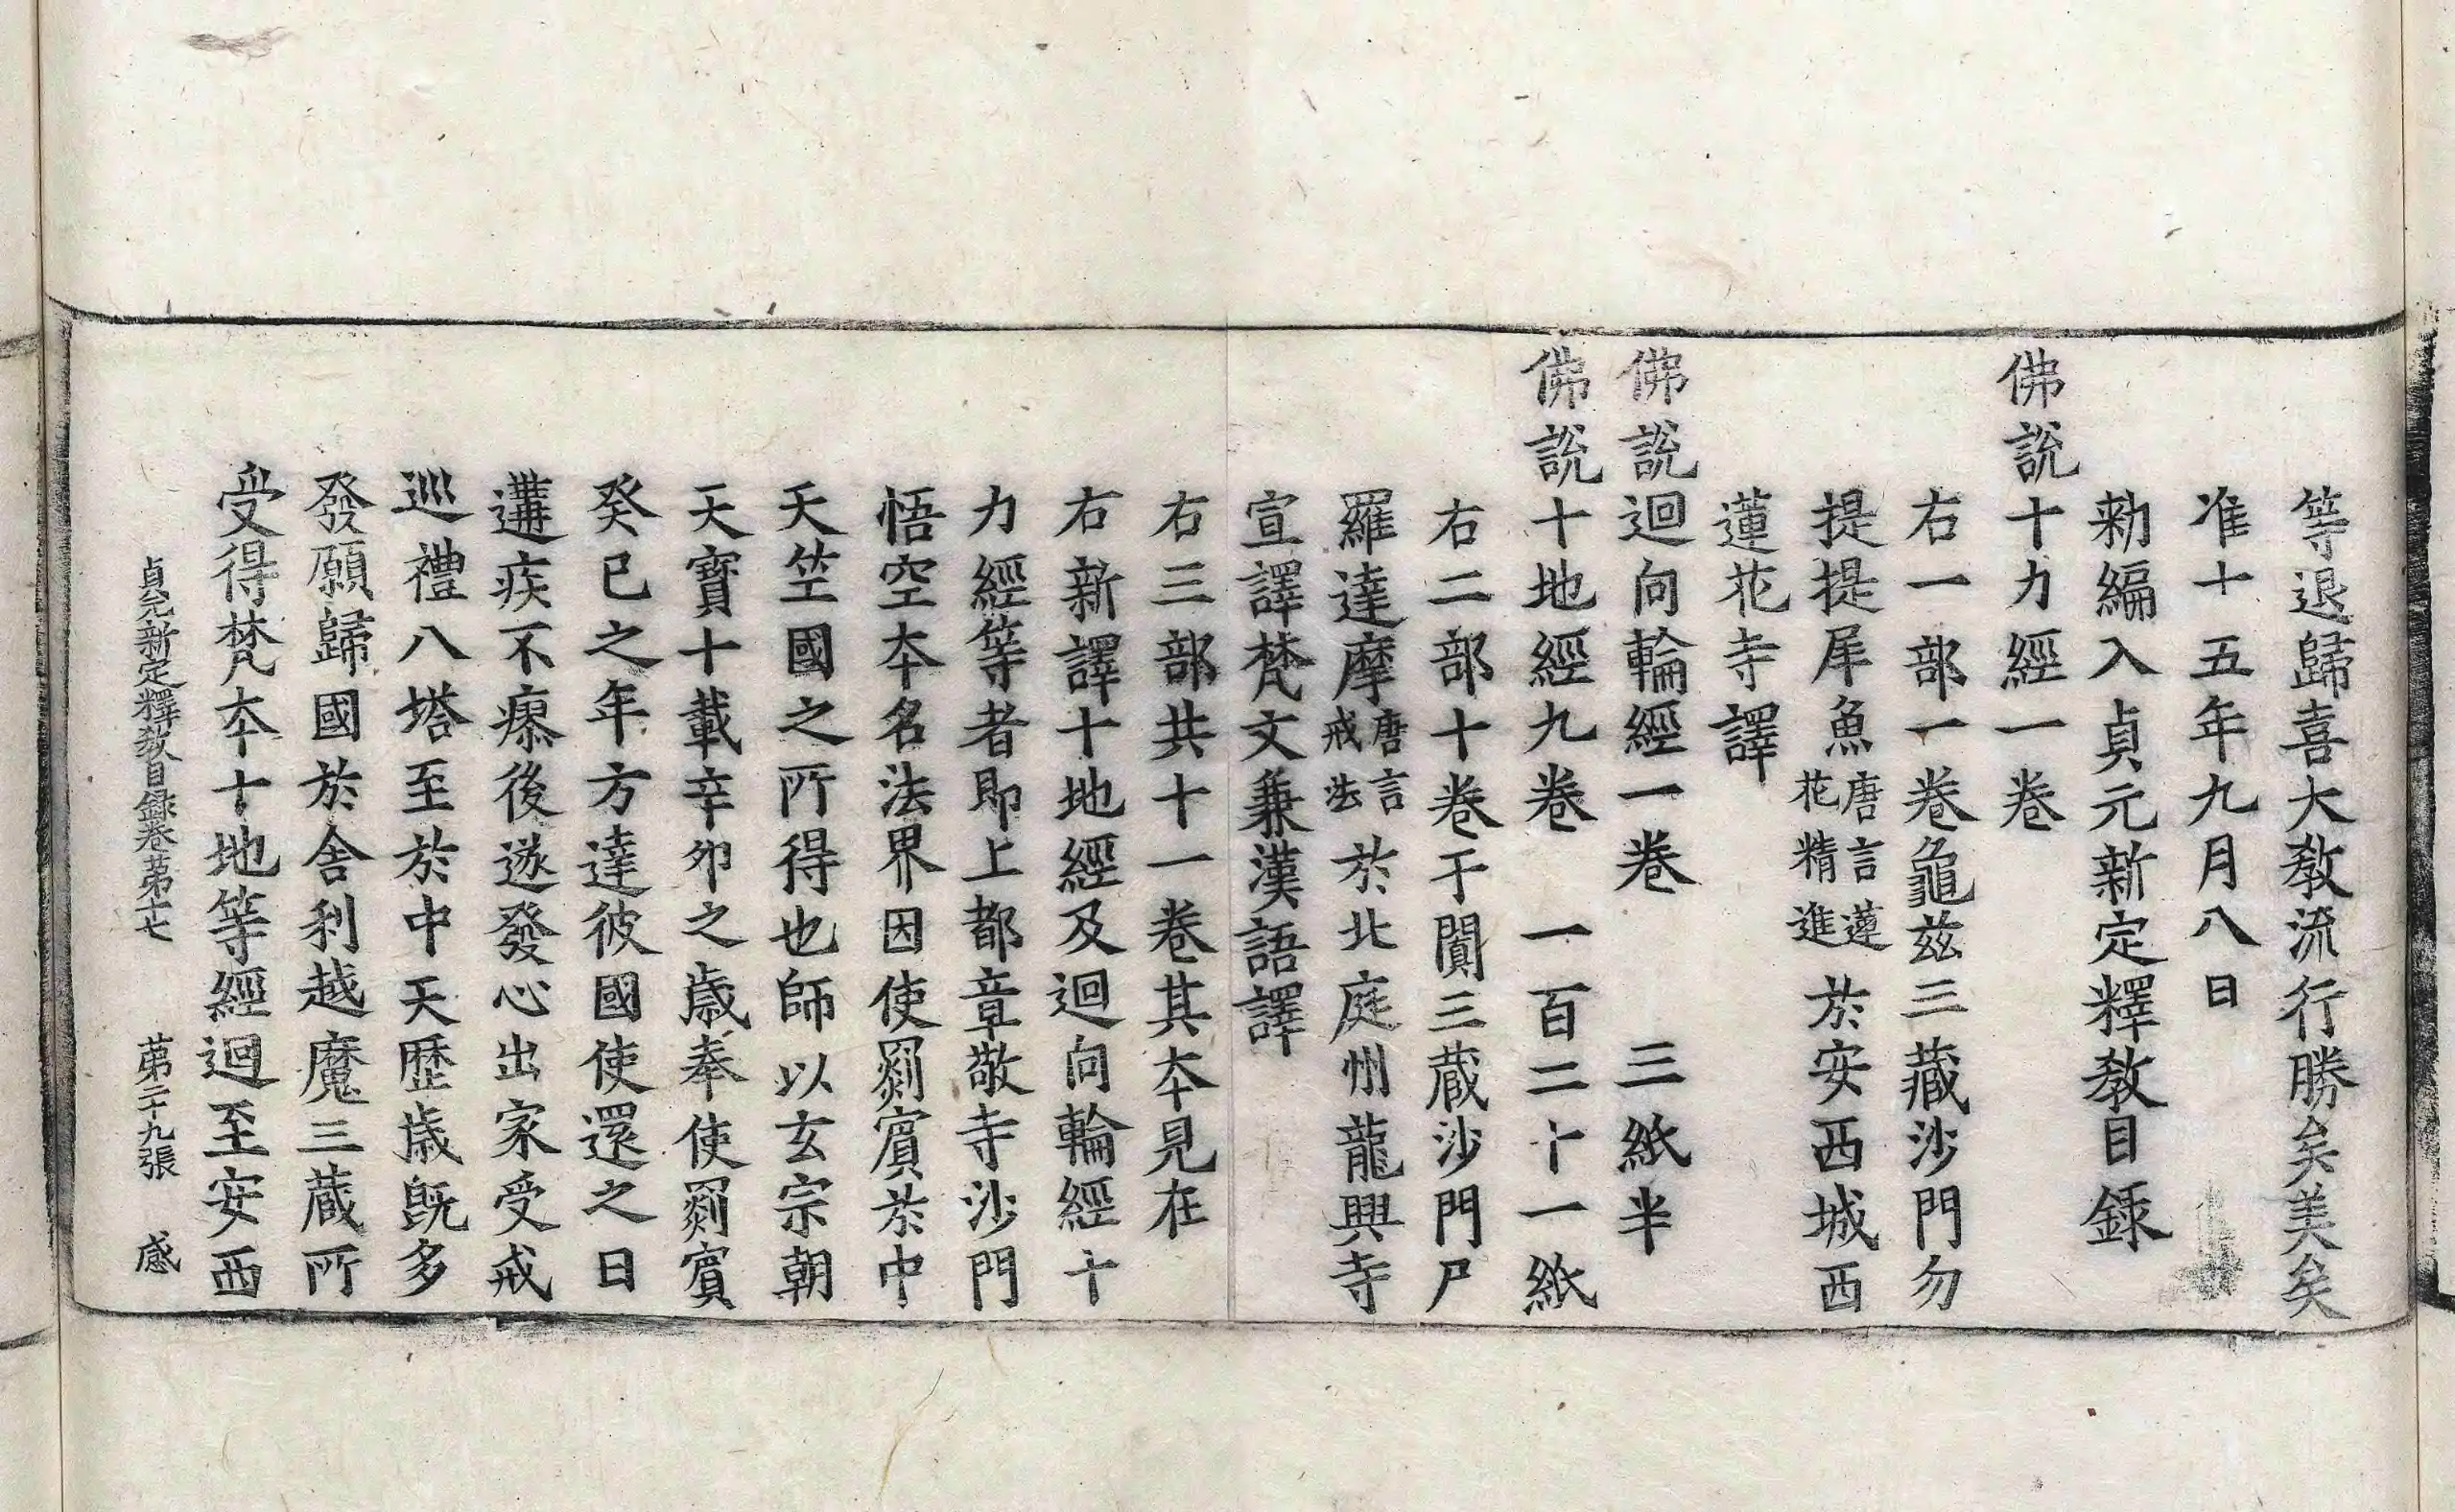 等退歸喜大教流行勝矣美矣
准十五年九月八日
勑編入貞元新定釋教目録
佛說十力經一卷
右一部一卷龜茲三藏沙門勿
提提犀魚唐言蓮花精進於安西城西
蓮花寺譯
佛說迴向輪經一卷　三紙半
佛說十地經九卷　一百二十一紙
右二部十卷于闐三藏沙門尸
羅達摩唐言戒法於北庭州龍興寺
宣譯梵文兼漢語譯
右三部共十一卷其夲見在
右新譯十地經及迴向輪經十
力經等者即上都章敬寺沙門
悟空夲名法界因使罽賓於中
天竺國之所得也師以玄宗朝
天寶十載辛卯之歲奉使罽賓
癸巳之年方達彼國使還之日
遘疾不瘳後遂發心出家受戒
巡禮八塔至於中天歷歲既多
發願歸國於舍利越魔三藏所
受得梵夲十地等經迴至安西
貞元新定釋教目録卷第十七　第二十九張　感